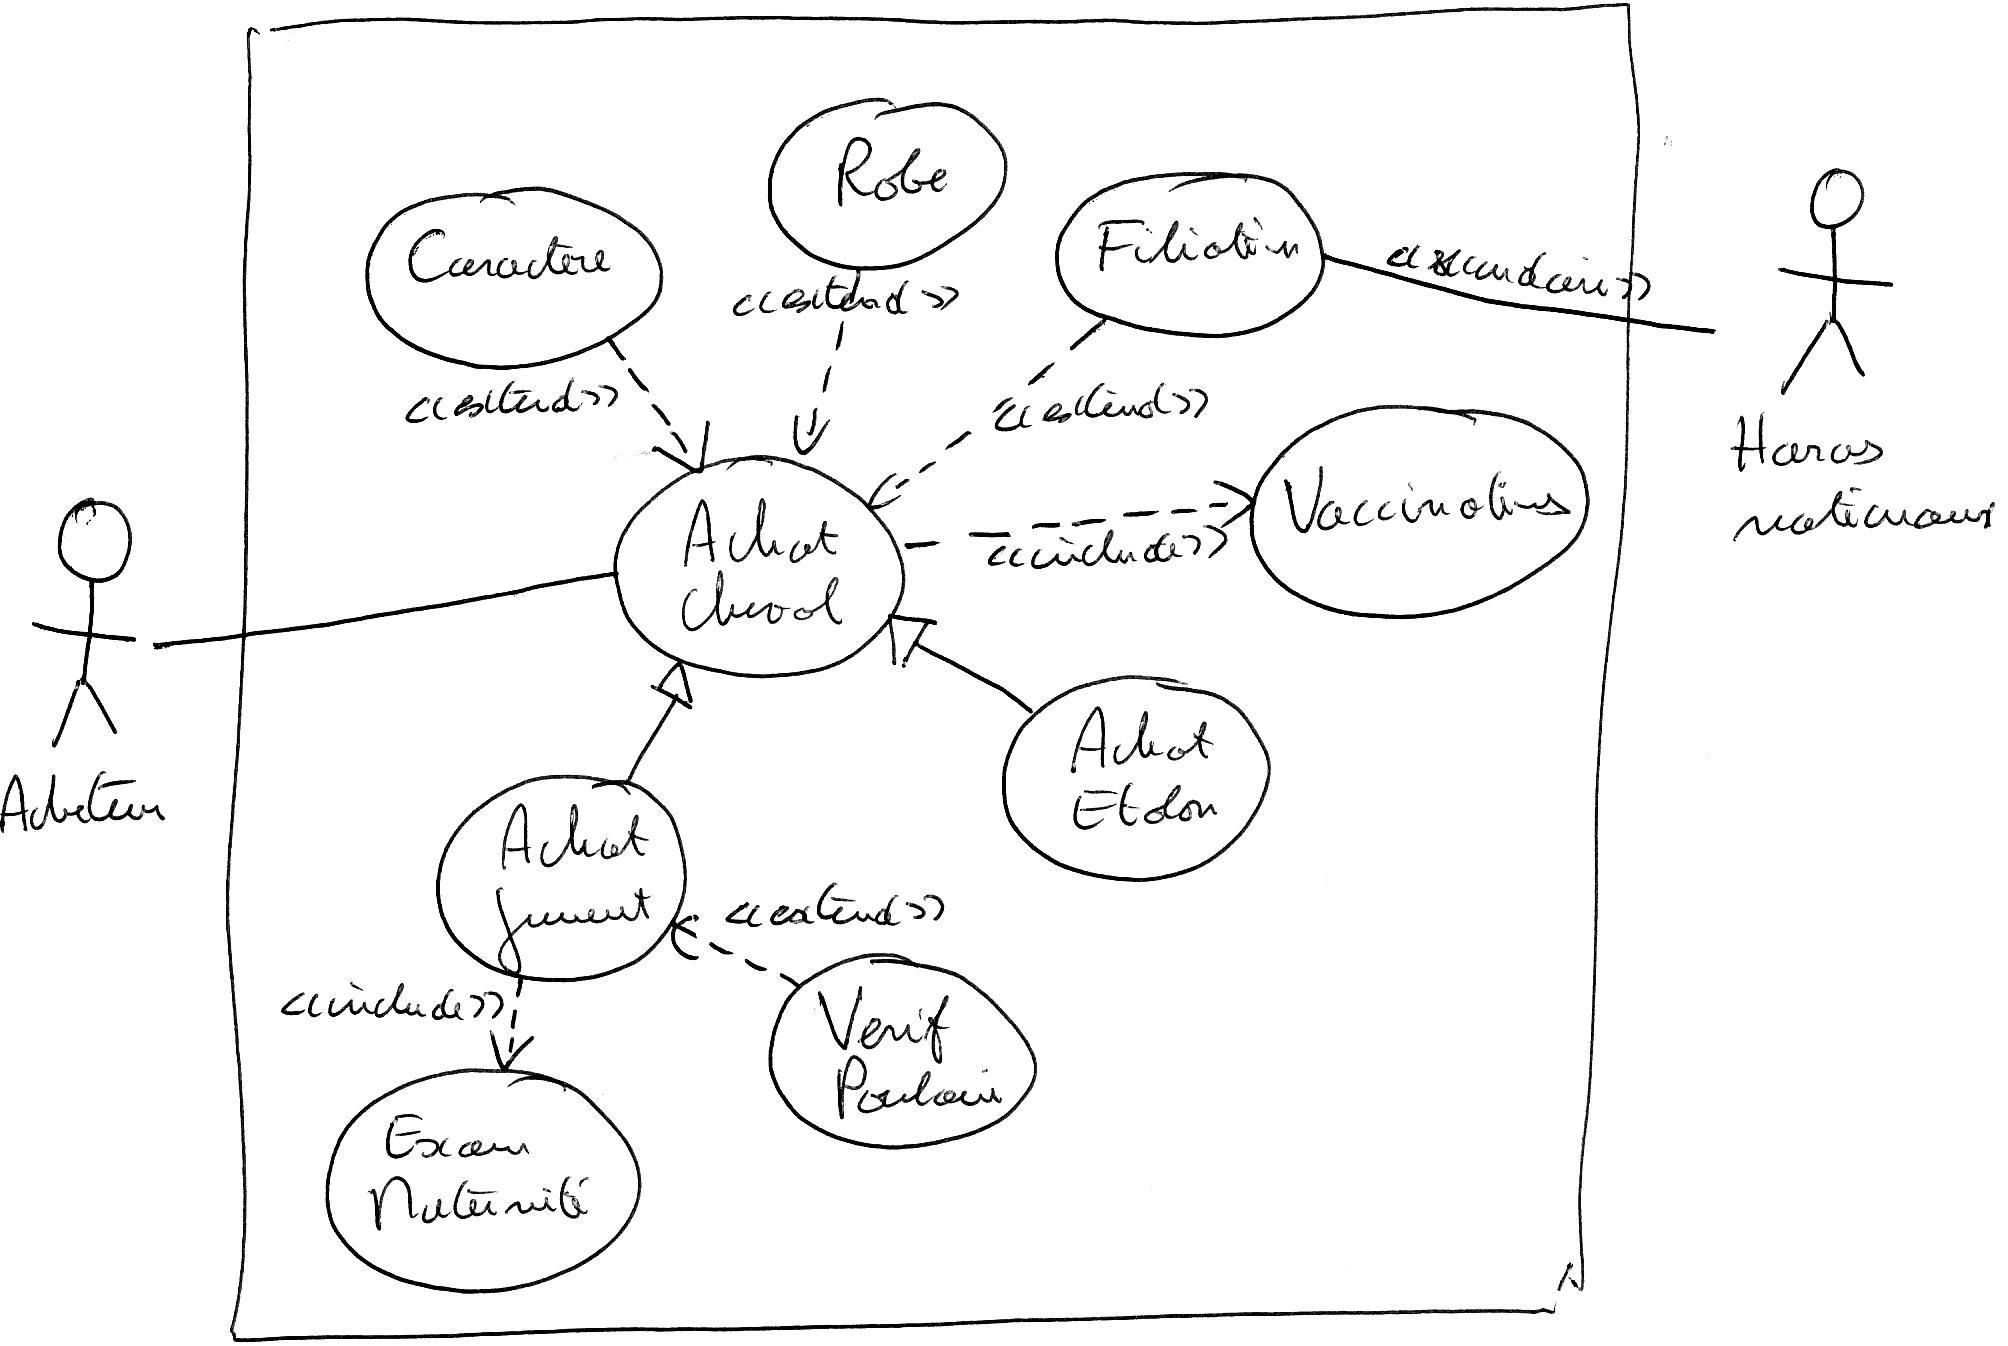 Robe
Caractere
Filiation
<<extend>>
<<secondaire>>
<<extend>>
<<extend>>
Haras
nationaux
Vaccinations
Achat
cheval
<<include>>
Achat
Etalon
Acheteur
Achat
jument
<<extend>>
<<include>>
Verif
Poulain
Exam
Maternité